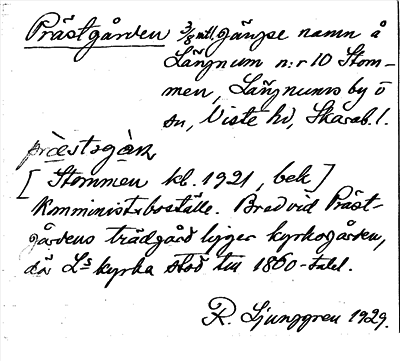 Prästgården 3/8 mtl. gängse namn å
Längnum n:r 10 Stom-
men, Längnums by o
sn, Viste hd, Skarab. l.
præ̀stsgɑ̀ɳ
[Stommen kb. 1921, bek]
Komministerboställe. Bred vid Präst-
gårdens trädgård ligger kyrkogården,
där L:s kyrka stod till 1860-talet.
R. Ljunggren 1929.